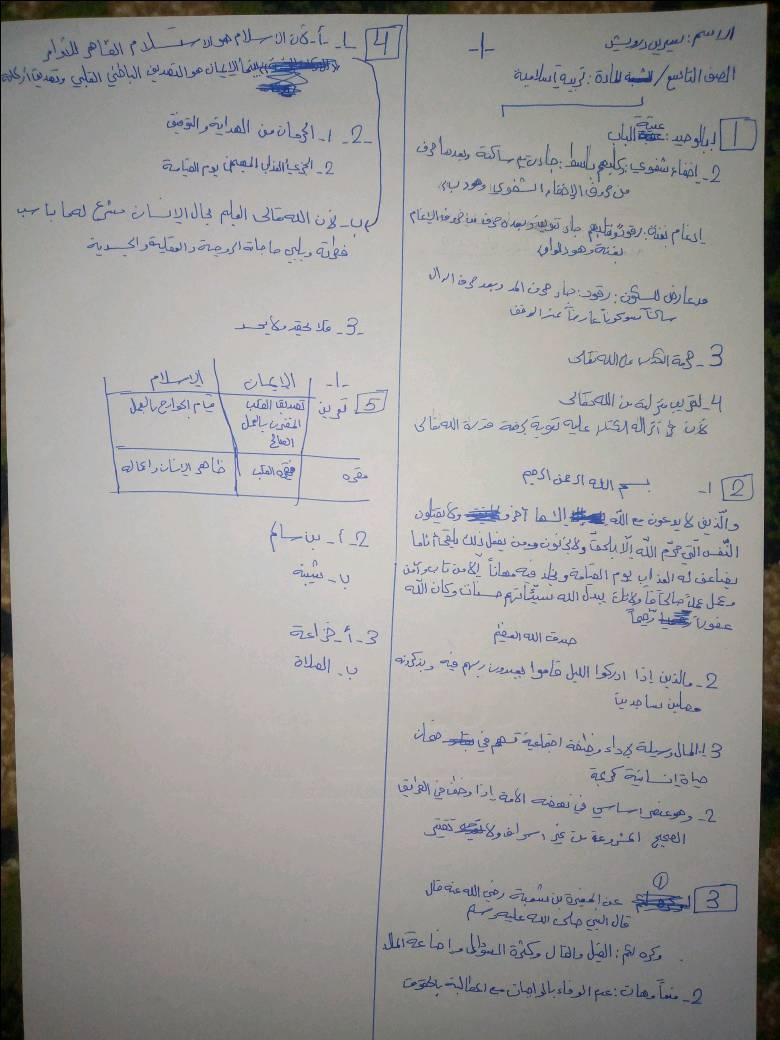 الاسم: سيرين درويش
-1-
الصف التاسع / المادة: تربية إسلامية
1
1- بالوصيد: عتبة الباب
2- إخفاء شفوي: كلبهم باسط: جاءت م ساكنة وبعدها حرف
من حروف الإخفاء الشفوي وهو ب
إدغام بغنة: رقود ونقلبهم جاء تنوين وبعده حرف من حروف الإدغام
بغنة وهو الواو
مد عارض للسكون: رقود: جاء حرف المد وبعده حرف الدال
ساكناً سكوناً عارضاً عند الوقف
3- حرمة على الله تعالى
4- لتقريب منزلة من الله تعالى
لأن في عليه تقوية قدرة الله تعالى
2
1-
بسم الله الرحمن الرحيم
والذين لا يدعون مع الله إلاها آخر ولا يقتلون
النفس التي حرم الله إلا بالحق ولا يزنون ومن يفعل ذلك يلقى أثاما
يضاعف له العذاب يوم القيامة ويخلد فيه مهاناً إلا من تاب وآمن
وعمل عملاً صالحاً فأولائك يبدل الله سيئاتهم حسنات وكان الله
غفوراً رحيماً
صدق الله العظيم
2- والذين إذا ادركوا الليل قاموا يعبدون ربهم فيه ويذكرونه
مصلين ساجدين
3 1- المال وسيلة لأداء وظيفة اجتماعية تسهم في ضمان
حياة إنسانية كريمة
2- وهو عنصر اساسي في نهضة الأمة إذا وضف في الطريق
الصحيح المشروعة من غير اسراف ولا تقتير
3
1
عن المغيرة بن شعبة رضي الله عنه قال
قال النبي صلى الله عليه وسلم
وكره لكم: القيل والقال وكثرة السؤال واضاعة المال
2- منعاً وهات: عدم الوفاء بالواجبات مع المطالبة بالحقوق
4
1- أ- لأن الإسلام هو الاستسلام الظاهر للأوامر
بينما الإيمان هو التصديق الباطني القلبي وتصديق أركانه
2- 1- الحرمان من الهداية والتوفيق
2- الخزي العذاب المهين يوم القيامة
ب- لأن الله تعالى العليم بحال الإنسان مشرع لهما يناسب
فطرته ويلبي حاجاته الروحية والعقلية والجسدية
3- فلا يحقد ولا يحسد
5
1-
الإيمان
الإسلام
تعريف
تصديق القلب
المقترن بالعمل
الصالح
قيام الجوارح بالعمل
مقره
مقره القلب
ظاهر الإنسان وأعماله
2- أ- بن سالم
ب- بثينة
3- أ- خزاعة
ب- الصلاة